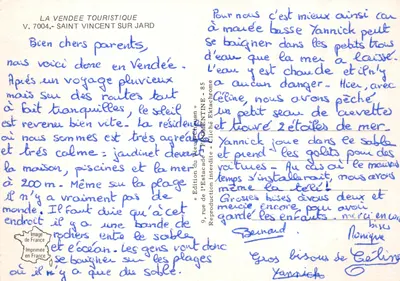 LA VENDEE TOURISTIQUE
V. 7004.- SAINT VINCENT SUR JARD
Bien chers parents,
nous voici donc en Vendée.
Après un voyage pluvieux
mais sur des routes tout
à fait tranquilles, le soleil
est revenu bien vite. La résidence
où nous sommes est très agréable
et très calme : jardinet devant
la maison, piscines et la mer
à 200 m. Même sur la plage
il n'y a vraiment pas de
monde. Il faut dire qu'à cet
endroit il y a une bande de
rochers entre le sable
et l'océan. Les gens vont donc
se baigner sur les plages
où il n'y a que du sable.
Image
de France
Imprimée
en France
Reproduction interdite
Pour nous c'est mieux ainsi car
à marée basse Yannick peut
se baigner dans les petits trous
d'eau que la mer a laissé.
L'eau y est chaude et il n'y
a aucun danger. Hier, avec
Céline, nous avons pêché
un petit seau de crevettes
et trouvé 2 étoiles de mer.
Yannick joue dans le sable
et prend les galets pour des
voitures. Au cas où le mauvais
temps s'installerait, nous avons
même la télé !
Grosses bises à vous deux et
merci encore pour avoir
gardé les enfants. merci encore
bises
Bernard
Monique
Gros bisous de Céline
Yannick